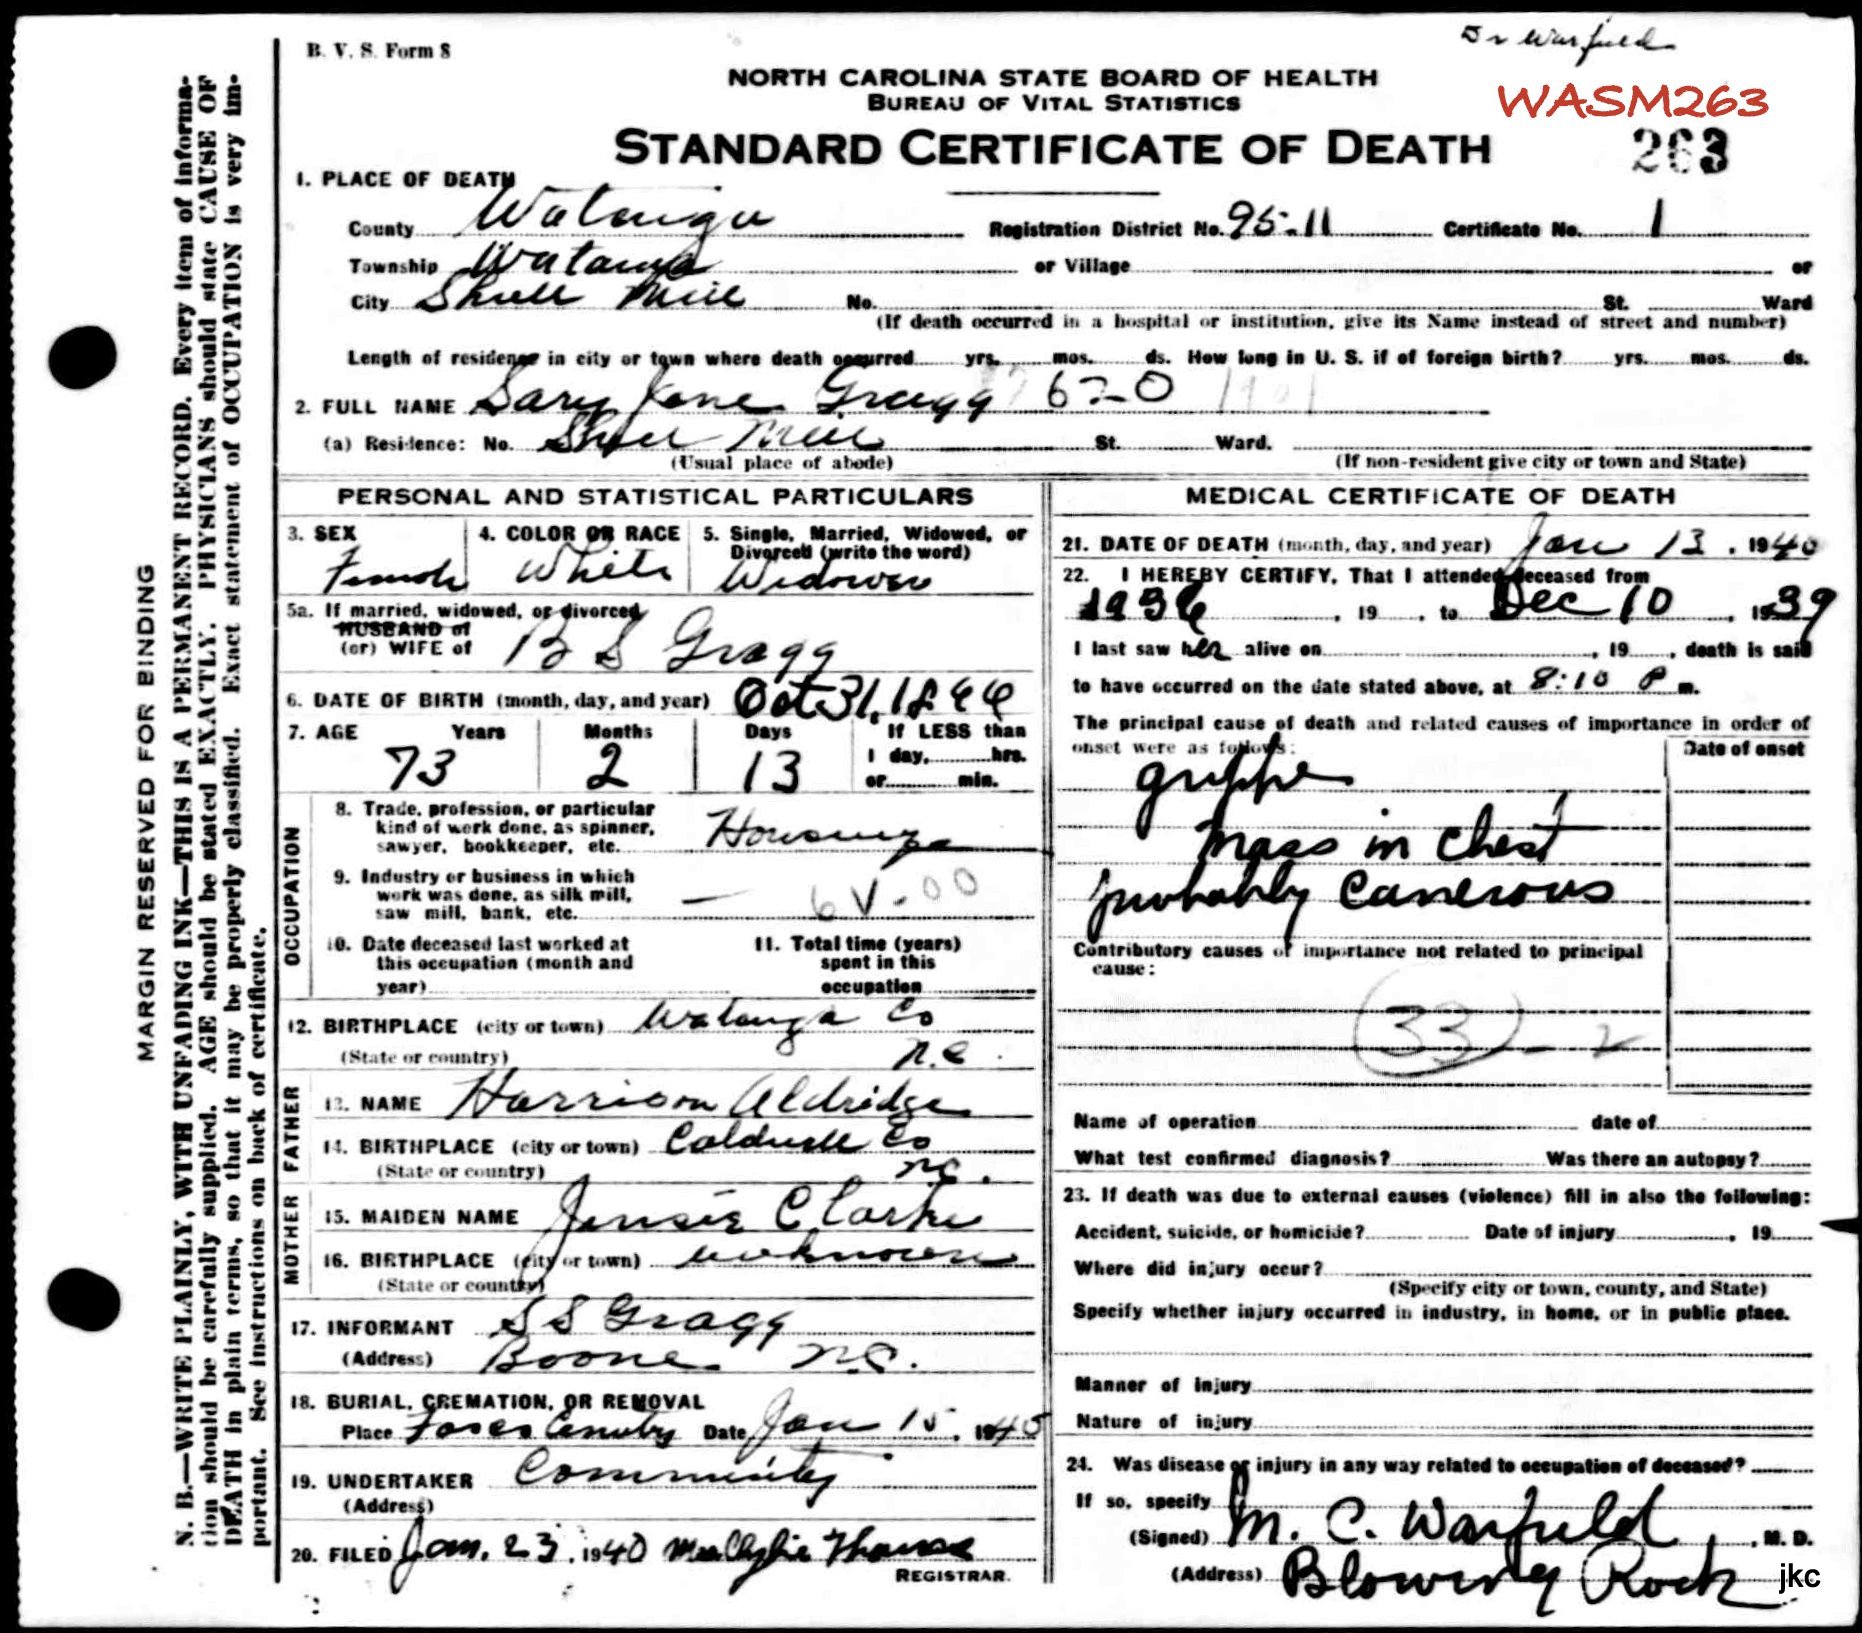 Dr Warfield
B. V. S. Form 8
NORTH CAROLINA STATE BOARD OF HEALTH
BUREAU OF VITAL STATISTICS
WASM263
STANDARD CERTIFICATE OF DEATH
263
1. PLACE OF DEATH
County Watauga Registration District No. 95-11 Certificate No. 1
Township Watauga or Village or
City Shull Mill No. St. Ward
(If death occurred in a hospital or institution, give its Name instead of street and number)
Length of residence in city or town where death occurred yrs. mos. ds. How long in U. S. if of foreign birth? yrs. mos. ds.
2. FULL NAME Sary Jane Gragg
(a) Residence: No. Shull Mill St. Ward.
(Usual place of abode) (If non-resident give city or town and State)
PERSONAL AND STATISTICAL PARTICULARS
3. SEX 4. COLOR OR RACE 5. Single, Married, Widowed, or
Divorced (write the word)
Female White Widower
5a. If married, widowed, or divorced
HUSBAND of
(or) WIFE of B S Gragg
6. DATE OF BIRTH (month, day, and year) Oct 31, 1866
7. AGE Years Months Days If LESS than
73 2 13 1 day, hrs.
or min.
OCCUPATION
8. Trade, profession, or particular
kind of work done, as spinner,
sawyer, bookkeeper, etc. Housewife
9. Industry or business in which
work was done, as silk mill, —
saw mill, bank, etc. 6V-00
10. Date deceased last worked at 11. Total time (years)
this occupation (month and spent in this
year) occupation
12. BIRTHPLACE (city or town) Watauga Co
(State or country) N.C.
FATHER
13. NAME Harrison Aldridge
14. BIRTHPLACE (city or town) Caldwell Co
(State or country) N.C.
MOTHER
15. MAIDEN NAME Jensie Clarke
16. BIRTHPLACE (city or town) unknown
(State or country)
17. INFORMANT S S Gragg
(Address) Boone N.C.
18. BURIAL, CREMATION, OR REMOVAL
Place Date Jan 15, 1940
19. UNDERTAKER Community
(Address)
20. FILED Jan. 23, 1940
REGISTRAR.
MEDICAL CERTIFICATE OF DEATH
21. DATE OF DEATH (month, day, and year) Jan 13, 1940
22. I HEREBY CERTIFY, That I attended deceased from
1936, 19 , to Dec 10, 1939
I last saw her alive on , 19 , death is said
to have occurred on the date stated above, at 8:10 P m.
The principal cause of death and related causes of importance in order of
onset were as follows: Date of onset
grippe
mass in chest
probably canerous
Contributory causes of importance not related to principal
cause:
33 - 2
Name of operation date of
What test confirmed diagnosis? Was there an autopsy?
23. If death was due to external causes (violence) fill in also the following:
Accident, suicide, or homicide? Date of injury , 19
Where did injury occur?
(Specify city or town, county, and State)
Specify whether injury occurred in industry, in home, or in public place.
Manner of injury
Nature of injury
24. Was disease or injury in any way related to occupation of deceased?
If so, specify
(Signed) M. C. Warfield, M. D.
(Address) Blowing Rock
jkc
MARGIN RESERVED FOR BINDING
N. B.—WRITE PLAINLY, WITH UNFADING INK—THIS IS A PERMANENT RECORD. Every item of informa-
tion should be carefully supplied. AGE should be stated EXACTLY. PHYSICIANS should state CAUSE OF
DEATH in plain terms, so that it may be properly classified. Exact statement of OCCUPATION is very im-
portant. See instructions on back of certificate.